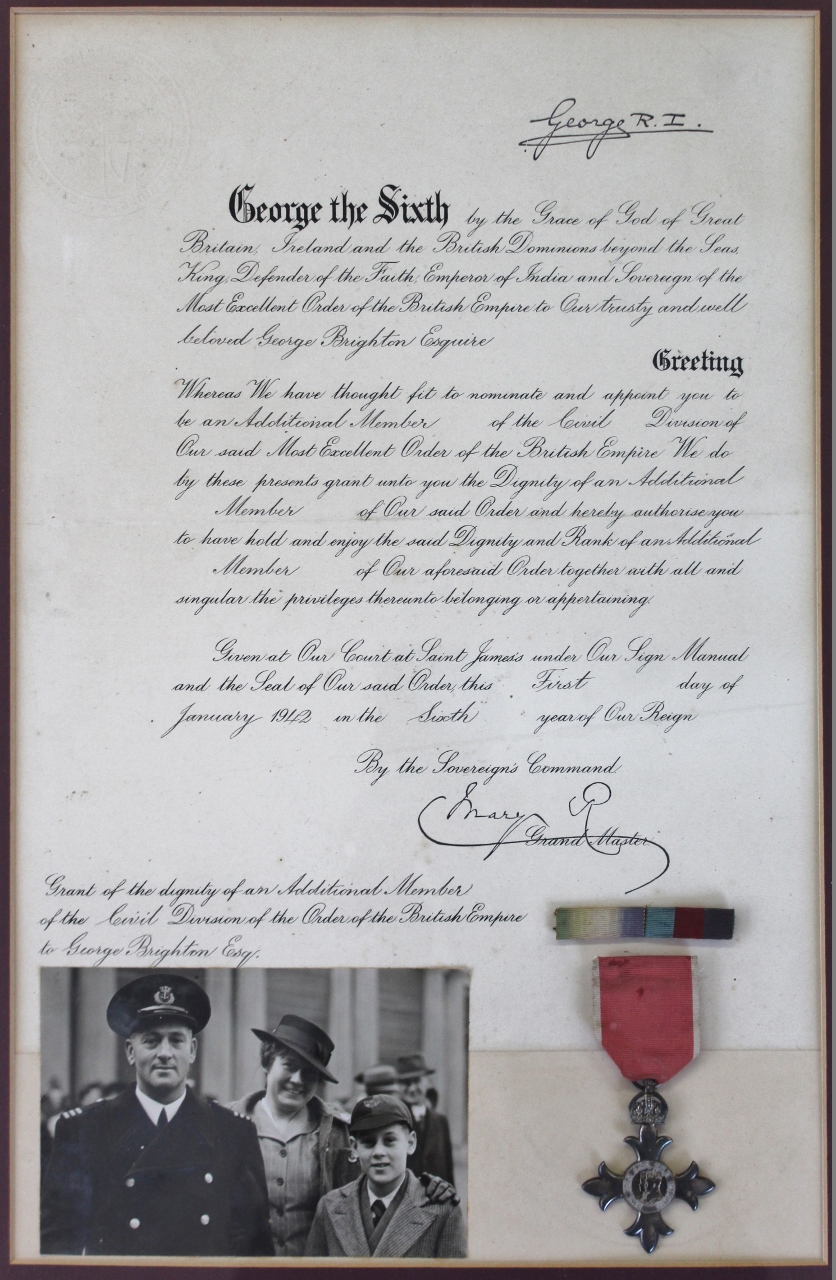 George R.I.
George the Sixth by the Grace of God of Great
Britain, Ireland and the British Dominions beyond the Seas,
King, Defender of the Faith, Emperor of India and Sovereign of the
Most Excellent Order of the British Empire to Our trusty and well
beloved George Brighton Esquire
Greeting
Whereas We have thought fit to nominate and appoint you to
be an Additional Member of the Civil Division of
Our said Most Excellent Order of the British Empire We do
by these presents grant unto you the Dignity of an Additional
Member of Our said Order and hereby authorise you
to have hold and enjoy the said Dignity and Rank of an Additional
Member of Our aforesaid Order together with all and
singular the privileges thereunto belonging or appertaining.
Given at Our Court at Saint James's under Our Sign Manual
and the Seal of Our said Order, this First day of
January 1942 in the Sixth year of Our Reign
By the Sovereign's Command.
Mary R
Grand Master
Grant of the dignity of an Additional Member
of the Civil Division of the Order of the British Empire
to George Brighton Esq.